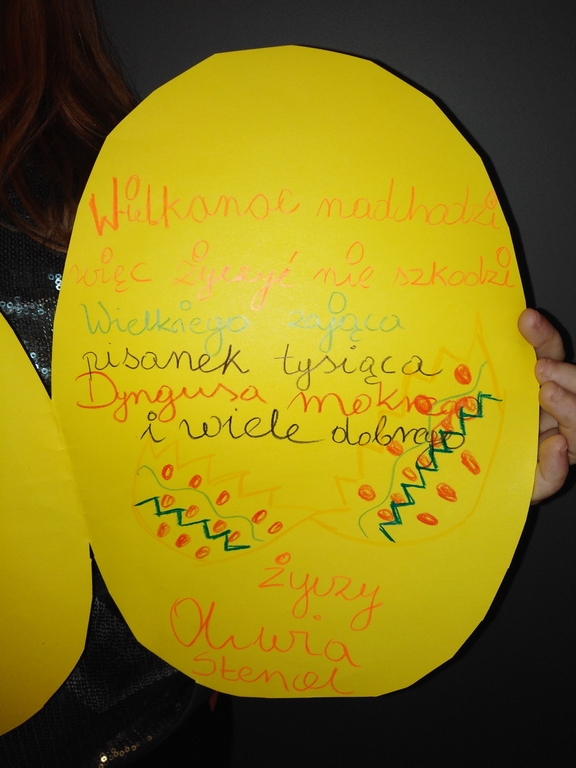 Wielkanoc nadchodzi
więc życzyć nie szkodzi
Wielkiego zająca
pisanek tysiąca
Dyngusa mokrego
i wiele dobrego
życzy
Oliwia
Stencel